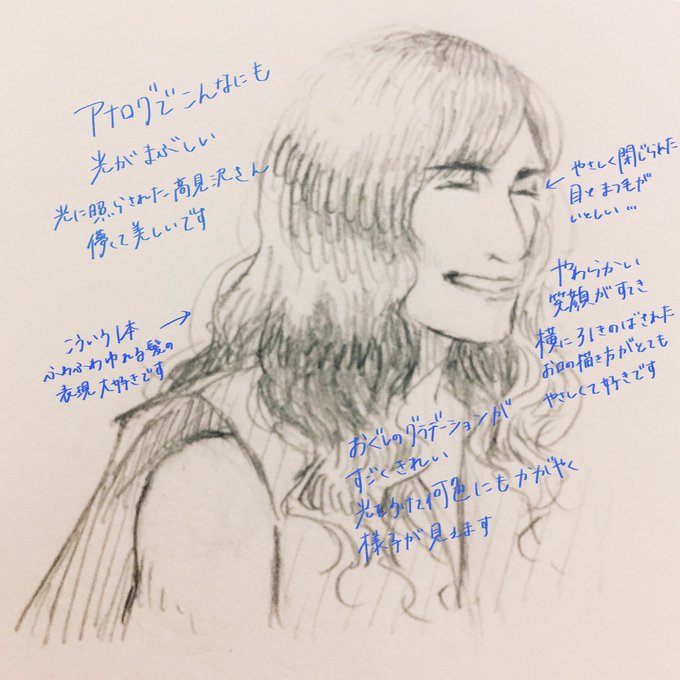 アナログでこんなにも
光がまぶしい
光に照らされた高見沢さん
儚くて美しいです
やさしく閉じられた
目とまつ毛が
いとしい…
やわらかい
笑顔がすてき
横に引きのばされた
お口の描き方がとても
やさしくて好きです
こういう1本
ふわふわゆれる髪の
表現大好きです
おぐしのグラデーションが
すごくきれい
光をうけて何色にもかがやく
様子が見えます